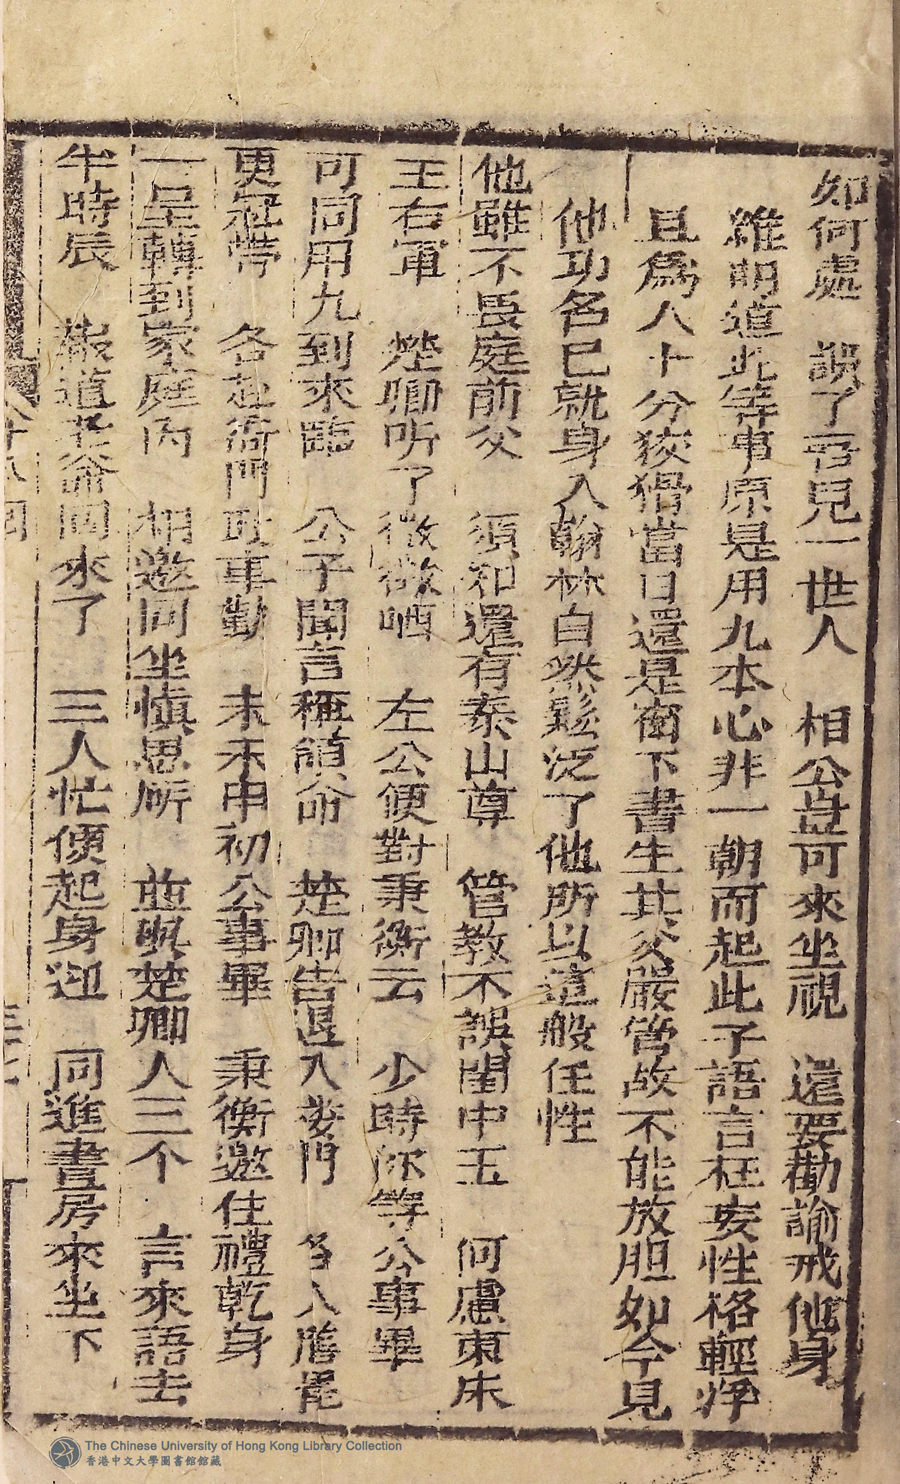 如何處　誤了君兒一世人　相公豈可來坐視　還要勸諭戒他身
維明道此等事原是用九本心非一朝而起此子語言枉妄性格輕浮
且為人十分狡猾當日還是窗下書生其父嚴管故不能放胆如今見
他功名已就身入翰林自然鬆泛了他所以這般任性
他雖不畏庭前父　須知還有泰山尊　管教不誤閨中玉　何慮東床
王右軍　楚卿听了微微哂　左公便對秉衡云　少時你等公事畢
可同用九到來臨　公子聞言稱領命　楚卿告退入後門　各人膳罷
更冠帶　各赴衙門政事勤　未末申初公事畢　秉衡邀住禮乾身
一呈轉到家庭內　相邀同坐慎思所　並與楚卿人三个　言來語去
半時辰　報道老爺回來了　三人忙便起身迎　同進書房來坐下
The Chinese University of Hong Kong Library Collection
香港中文大學圖書館館藏